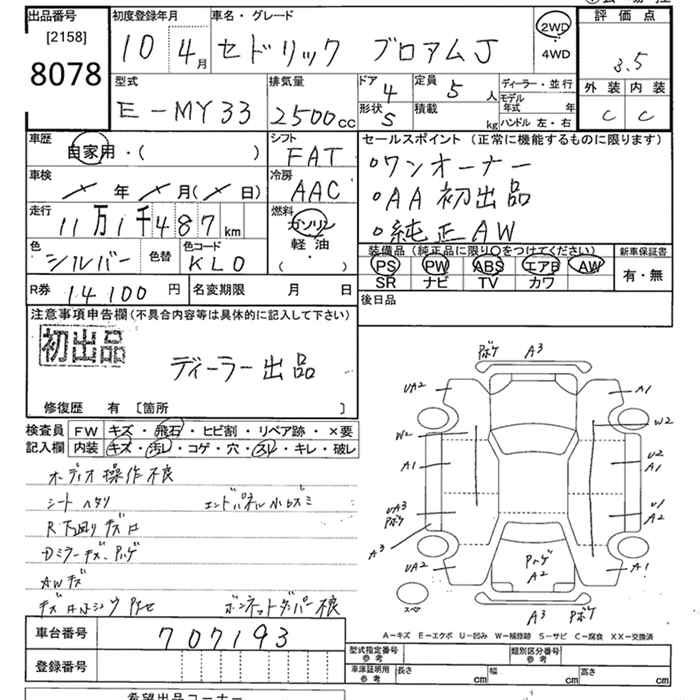 出品番号 初度登録年月 車名・グレード 評価点
[2158]
8078
10 4月 セドリック ブロアムJ 2WD 4WD 3.5
型式 排気量 ドア 定員 ディーラー・並行 外装 内装
E-MY33 2500cc 4 5人 モデル年式 年 C C
形状 S 積載 kg ハンドル 左・右
車歴 シフト セールスポイント(正常に機能するものに限ります)
自家用・( ) FAT ・ワンオーナー
車検 年 月( 日) 冷房 AAC ・AA初出品
走行 11万1千487km 燃料 ガソリン 軽油 ・( ) ・純正AW
色 シルバー 色替 色コード KL0
装備品(純正品に限り○をつけてください) 新車保証書
PS PW ABS エアB AW 有・無
SR ナビ TV カワ
R券 14100円 名変期限 月 日 後日品
注意事項申告欄(不具合内容等は具体的に記入して下さい)
初出品
ディーラー出品
修復歴 有 [箇所 ]
検査員記入欄 FW キズ・飛石・ヒビ割・リペア跡・×要
内装 キズ・汚れ・コゲ・穴・スレ・キレ・破レ
オーディオ操作不良
シートヘタリ エンドパネル小ズミ
R下廻りキズ
Dミラーキズ、ハゲ
AWキズ
ボンネットダンパー不良
Pボケ A3
UA2 A1
W2 W2
A1 U2 A1
UA3 Pボケ U1 A2
A3
UA2 Pハゲ A2 A1
スペア
A3 Pボケ
A-キズ E-エクボ U-凹み W-補修跡 S-サビ C-腐食 XX-交換済
車台番号 707193
登録番号
型式指定番号 参考 類別区分番号 参考
車庫証明用 参考 長さ cm 幅 cm 高さ cm
希望出品コーナー